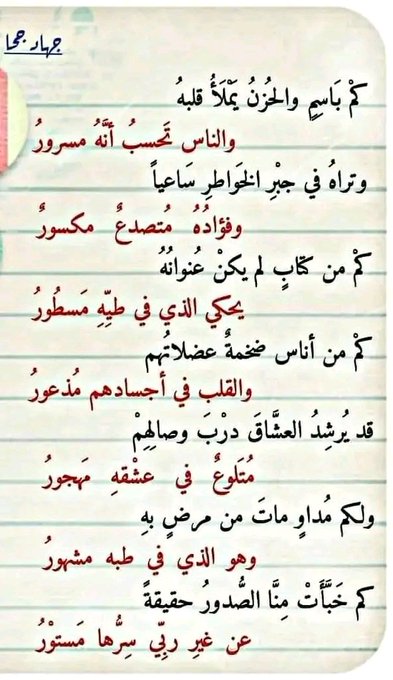 جهاد جحا
كمْ بَاسِمٍ والحُزنُ يَمْلَأُ قلبهُ
والناس تَحسبُ أنَّهُ مسرورُ
وتراهُ في جبْرِ الخَواطرِ سَاعياً
وفؤادُهُ مُتصدعٌ مكسورٌ
كمْ من كتابٍ لم يكنْ عُنوانُهُ
يحكي الذي في طيِّهِ مَسطُورُ
كمْ من أناس ضخمةٌ عضلاتُهم
والقلب في أجسادهم مُذعورُ
قد يُرشِدُ العشَّاقَ درْبَ وصالِهِمْ
مُتَلوعٌ في عشْقهِ مَهجورُ
ولكم مُداوٍ ماتَ من مرضٍ بهِ
وهو الذي في طبه مشهورُ
كم خَبَّأَتْ مِنَّا الصُّدورُ حقيقةً
عن غيرِ ربِّي سِرُّها مَستوْرُ